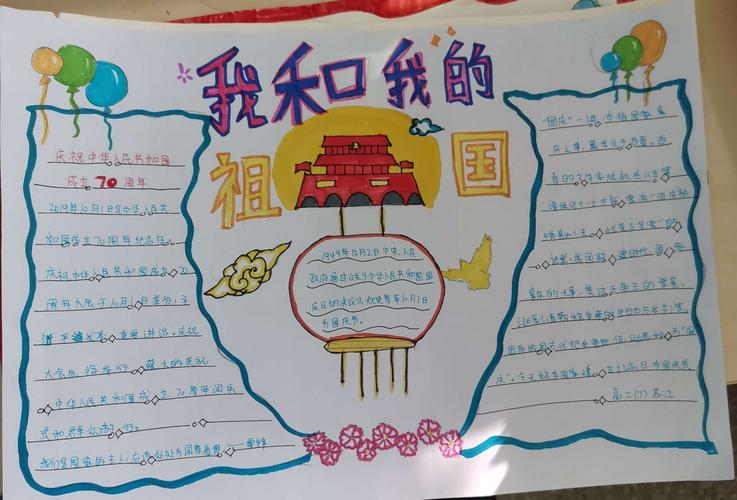 我和我的
祖国
庆祝中华人民共和国
成立70周年
2019年10月1日是中华人民共
和国成立70周年纪念日。
庆祝中华人民共和国成立70
周年大会于10月1日举行，
重要讲话。庆祝
大会后，将举行盛大的庆祝
中华人民共和国成立70周年阅兵
式和群众游行。
我们是国家的主人，应
1949年12月2日中央人民
政府通过《关于中华人民共和国国
庆日的决议》，规定每年10月1日
为国庆节。
"国庆"一词，本指国家喜
庆之事，最早见于西晋。西
晋的文学家陆机在《五等
诸侯论》一文中就曾有"国庆独
我国封建时代、国家
喜庆的大事，莫过于帝王的登基、
因而我国古代把皇帝即位、诞辰称为"国
庆"。今天称为国家建立的纪念日为国庆节
高二(7)